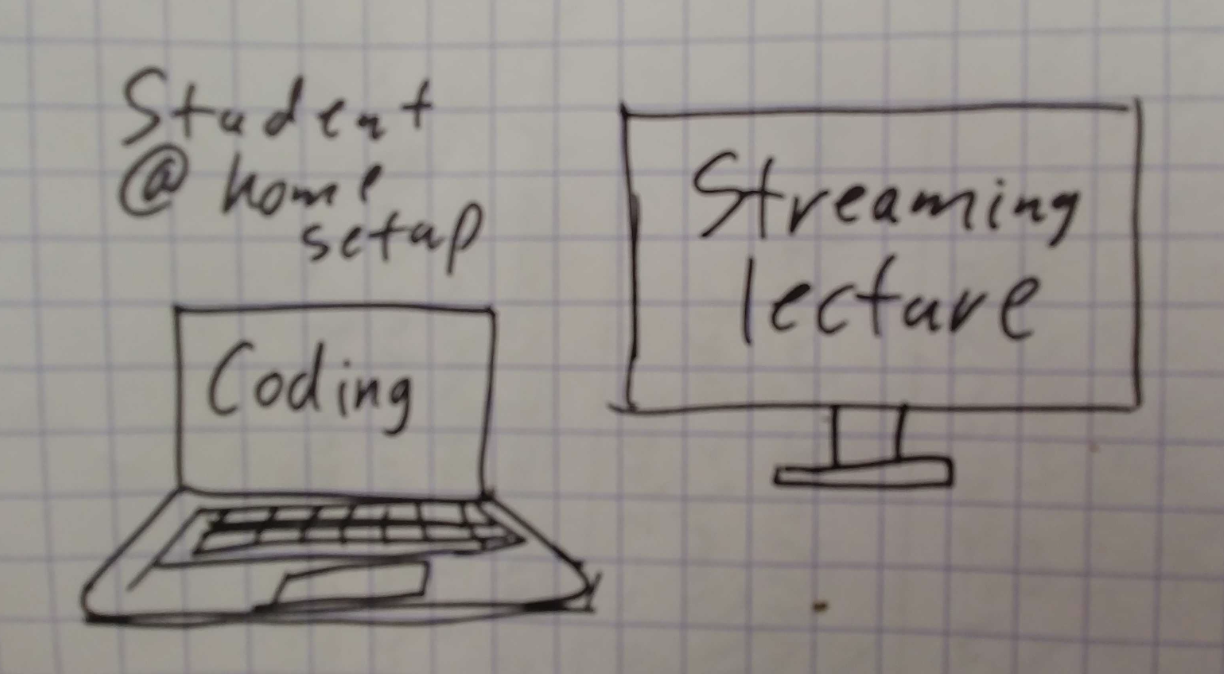 Student
@ home
setup
Coding
Streaming
lecture